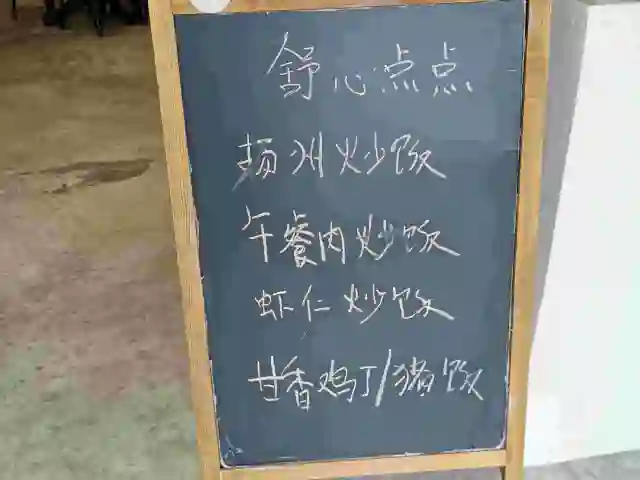 舒心点点
扬州炒饭
午餐肉炒饭
虾仁炒饭
甘香鸡丁/猪饭